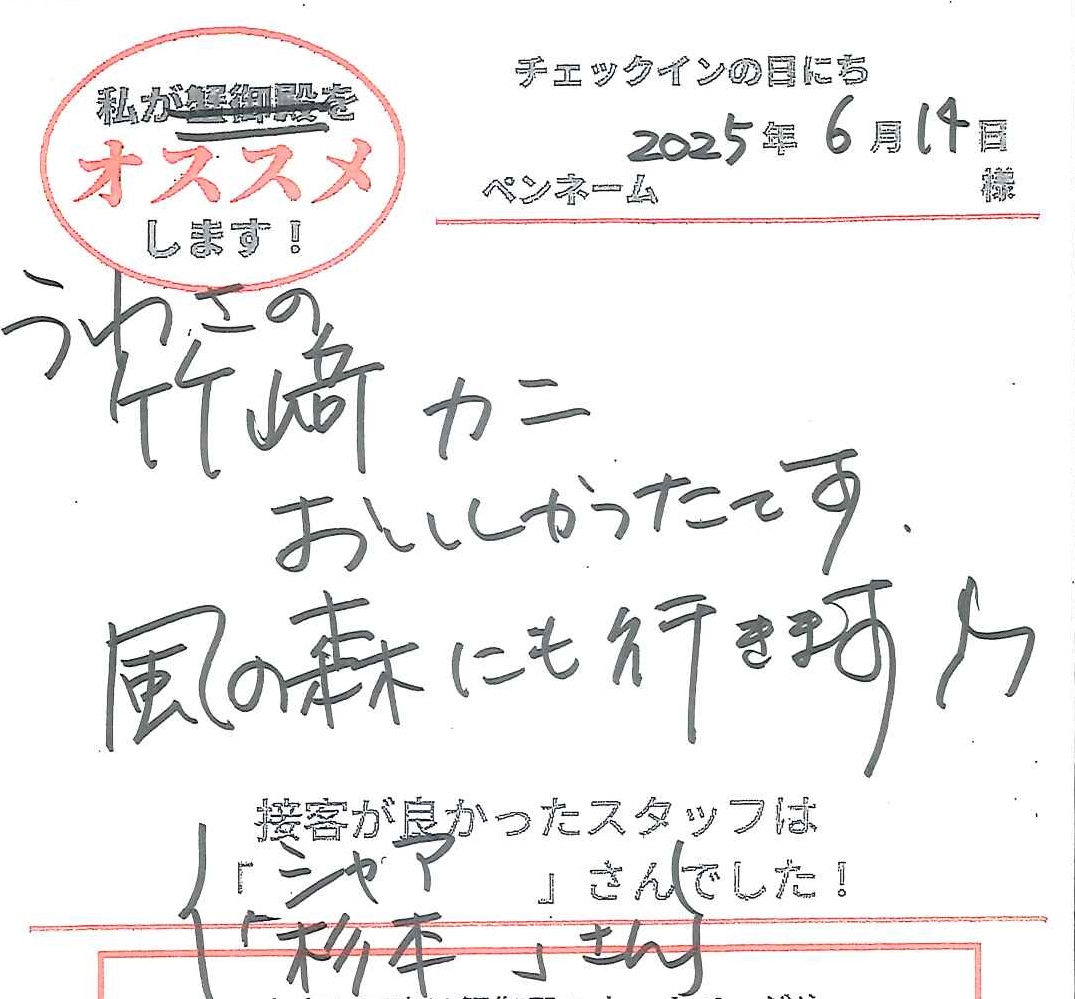 私が蟹御殿を
オススメ
します！
チェックインの日にち
2025年6月14日
ペンネーム 様
うわさの
竹﨑カニ
おいしかったてす.
風の森にも行きます
接客が良かったスタッフは
「シャア」さんでした！
「杉本」さん